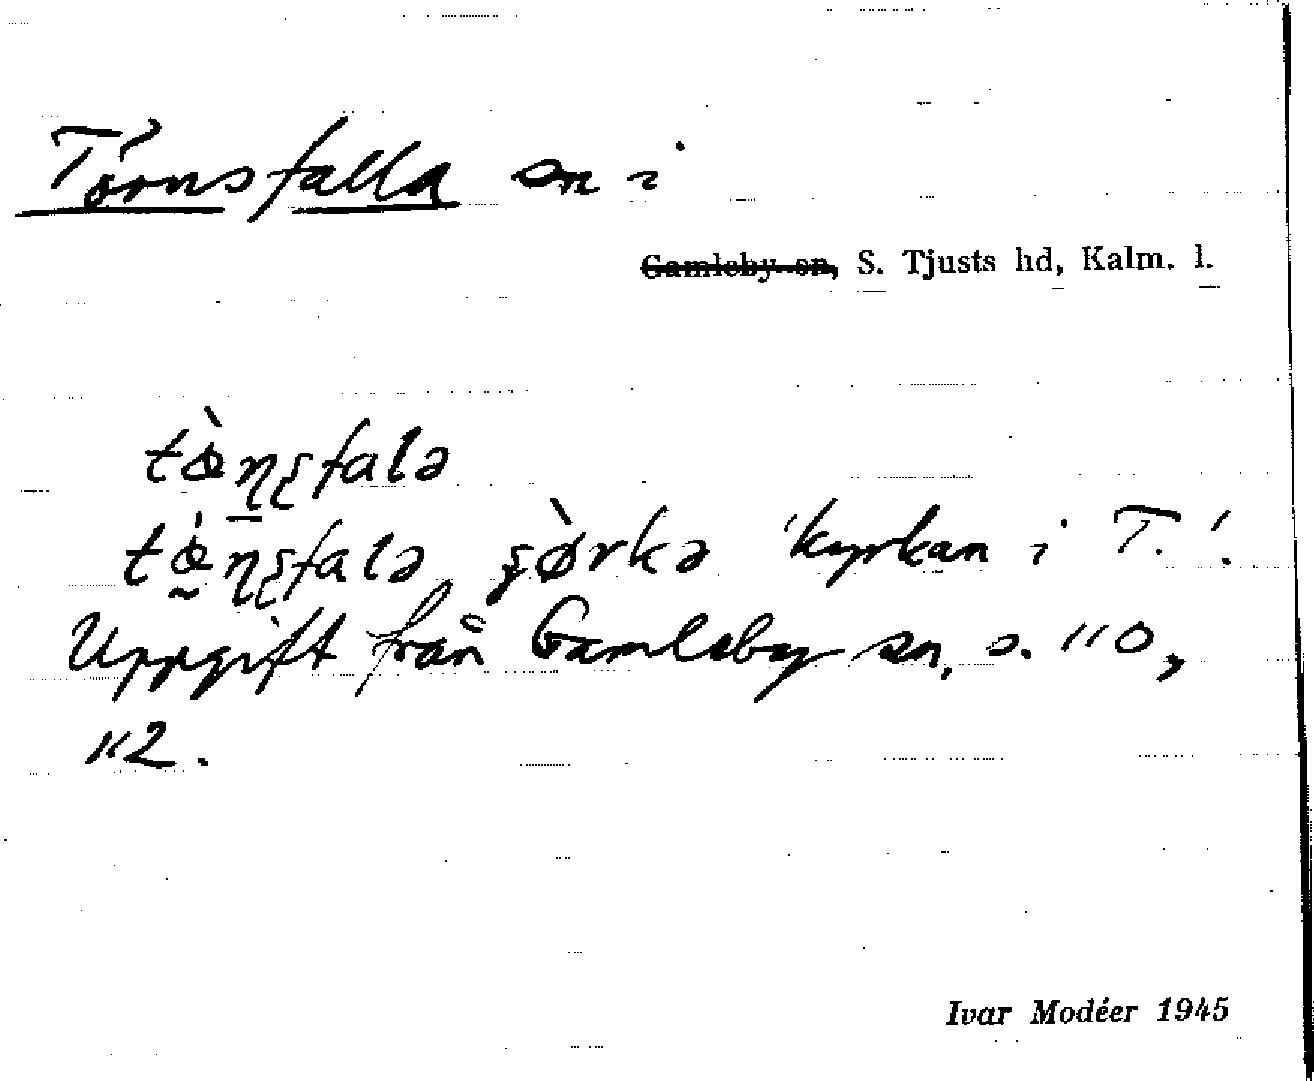 Törnsfalla sn i
Gamleby sn, S. Tjusts hd, Kalm. l.
tœ̀ɳʂfalə
tœ́ɳʂfalə ʂø̀rkə 'kyrkan i T.'.
Uppgift från Gamleby sn, s. 110,
112.
Ivar Modéer 1945